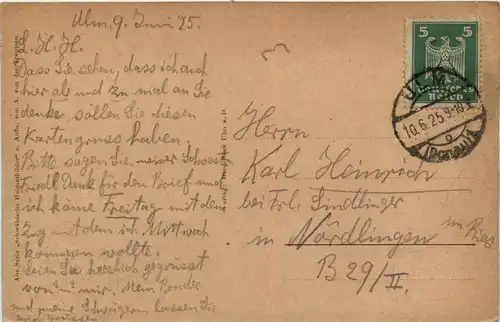 Ulm, 9. Juni 25.
L. H. H.
Dass Sie sehen, dass ich auch
hier ab und zu mal an Sie
denke, sollen Sie diesen
Kartengruss haben.
Bitte sagen Sie meiner Schwester
Friedl Dank für den Brief und
ich käme Freitag mit dem
Zug mit dem ich Mittwoch
kommen wollte.
Seien Sie herzlich gegrüsst
von mir. Mein Bruder
und meine Schwägerin lassen Sie
auch grüssen.
Aus Serie „Schwäbische
5 5
Deutsches
Reich
ULM
10.6.25.9-10
(Donau)
Herrn
Karl Heinrich
bei Frl. Sindlinger
in Nördlingen im Ries
B 29/II